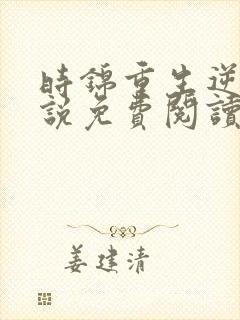 時錦重生逆
說免費閱讀
姜建清